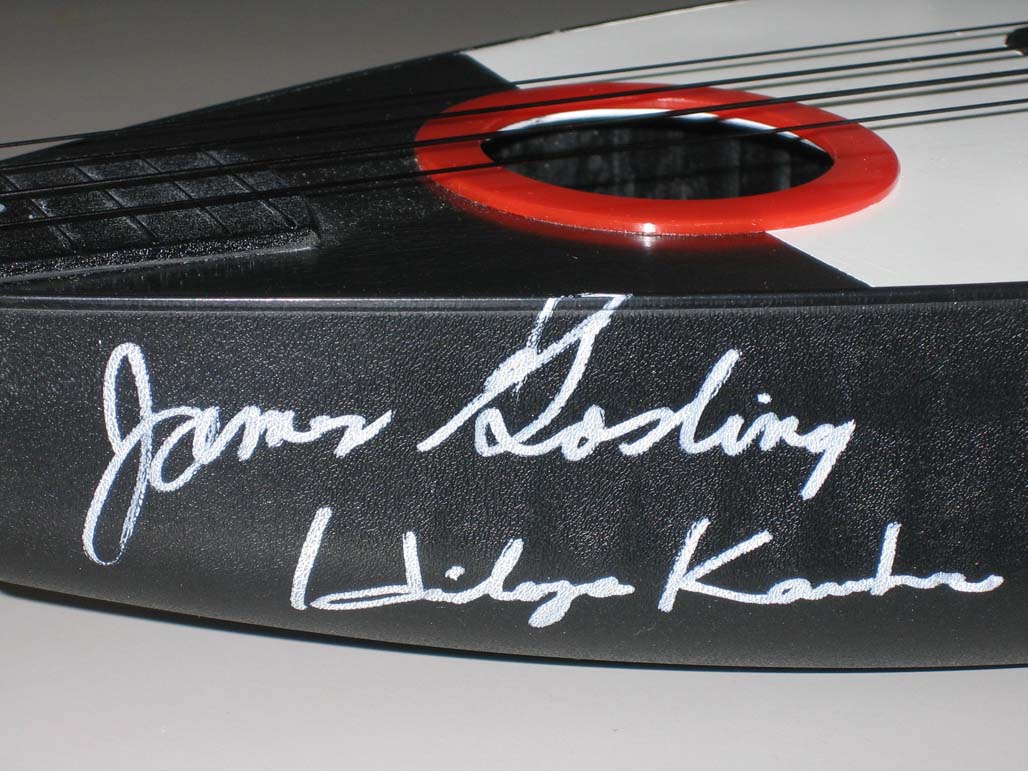 James Gosling
Hideya Kawahara